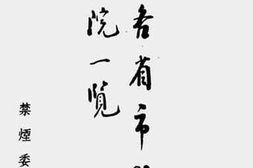 各省市
院一覽
禁煙委